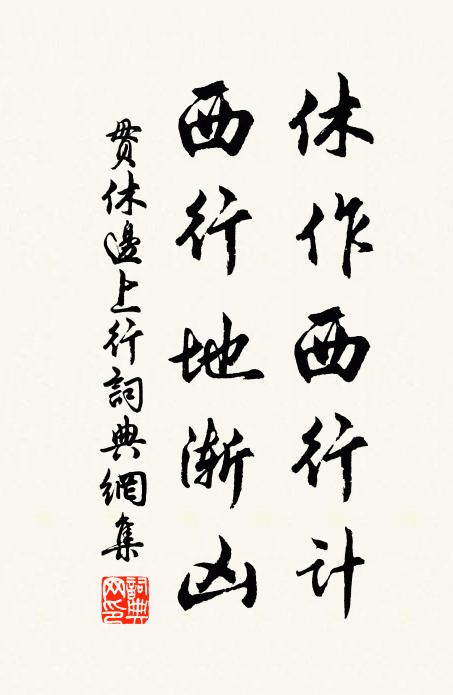 休作西行计
西行地渐凶
贯休邊上行詞典網集
詞典网印